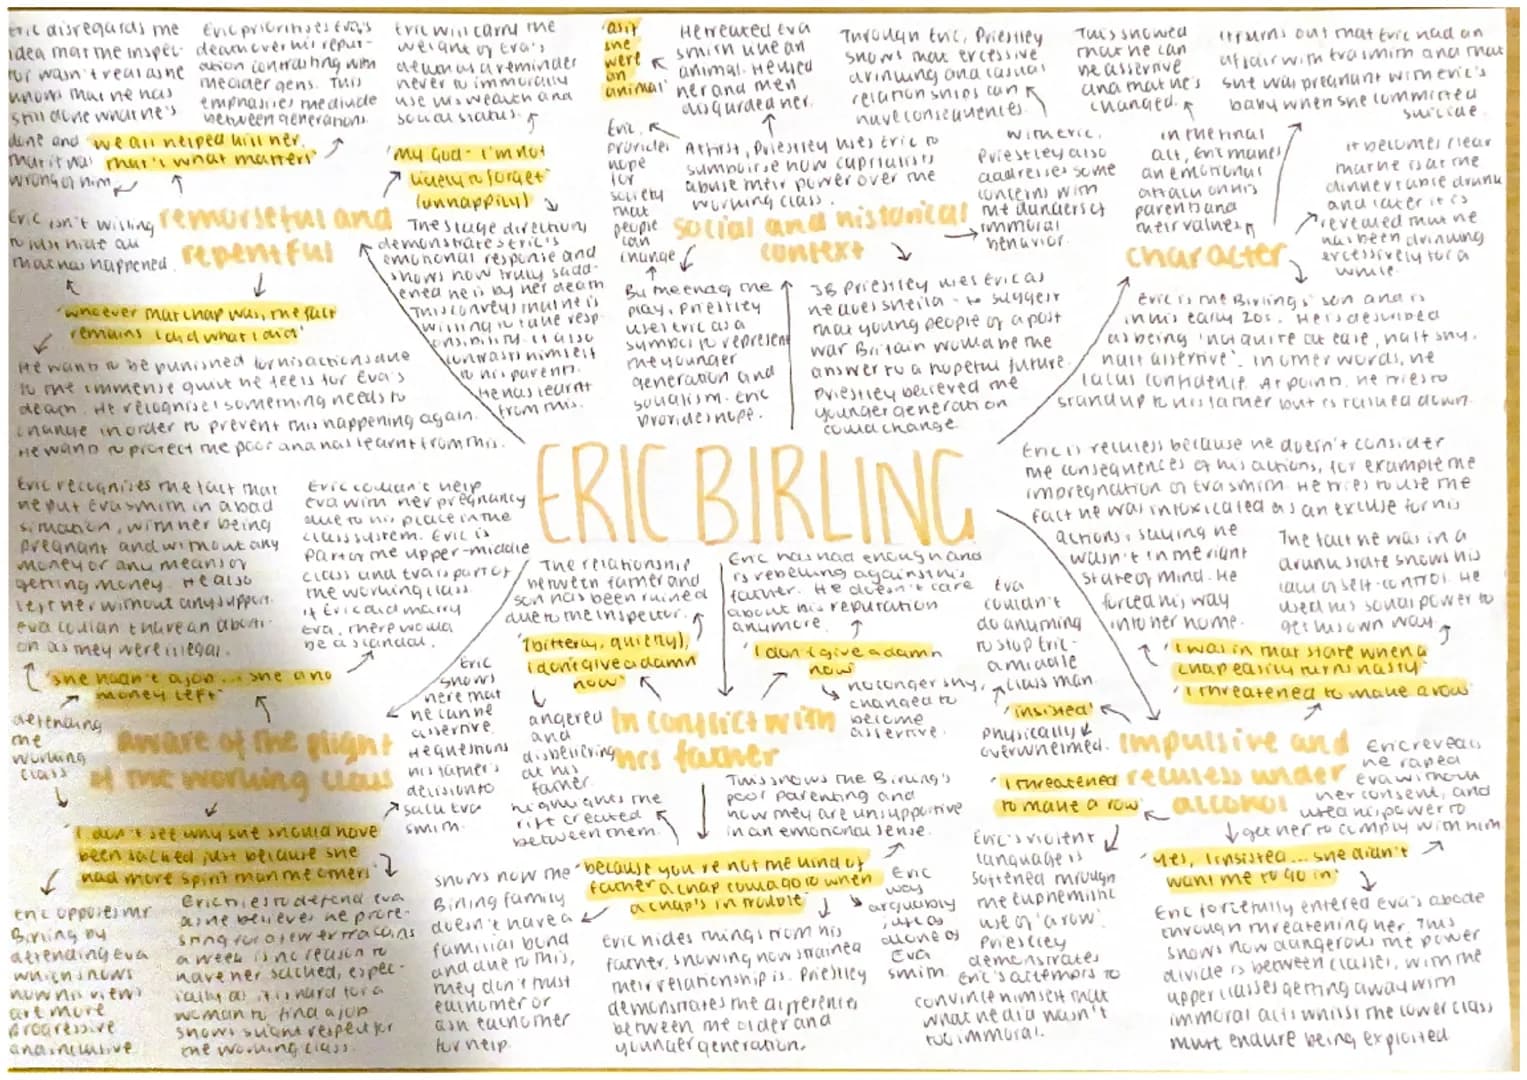 Eric disregards the
idea that the inspec-
tor wasn't real as he
knows that he has
still done what he's
done and
that it was
wrong of him
Eric prioritises Eva's
death over his reput-
ation contrasting with
the older gens. This
emphasises the divide
between generations.
Eric will carry the
weight of Eva's
death as a reminder
never to immorally
use his wealth and
social status.
'we all helped kill her,
that's what matters'
'My God - I'm not
likely to forget'
(unhappily)
Eric isn't willing
to just hide all
that has happened.
remorseful and
repentful
The stage direction
demonstrates Eric's
emotional response and
shows how truly sadd-
ened he is by her death
This conveys that he is
willing to take resp-
onsibility. It also
contrasts himself
to his parents.
He has learnt
from this.
'whoever that chap was, the fact
remains I did what I did'
He wants to be punished for his actions due
to the immense guilt he feels for Eva's
death. He recognises something needs to
change in order to prevent this happening again.
He wants to protect the poor and has learnt from this.
'as if
she
were
an
animal'
He treated Eva
smith like an
animal. He used
her and then
disgarded her.
Through Eric, Priestley
shows that excessive
drinking and casual
relationships can
have consequences.
Eric
provides
hope
for
society
that
people
can
change
At first, Priestley uses Eric to
symbolise how capitalists
abuse their power over the
working class.
With Eric,
Priestley also
addresses some
concerns with
the dangers of
immoral
behavior.
social and historical
context
By the end of the
play, Priestley
uses Eric as a
symbol to represent
the younger
generation and
socialism. Eric
provides hope.
JB Priestley uses Eric as
he does Sheila - to suggest
that young people of a post
war Britain would be the
answer to a hopeful future.
Priestley believed the
younger generation
could change.
This showed
that he can
be assertive
and that he's
changed.
It turns out that Eric had an
affair with Eva smith and that
she was pregnant with Eric's
baby when she committed
suicide.
In the final
act, Eric makes
an emotional
attack on his
parents and
their values
It becomes clear
that he is at the
dinner table drunk
and later it is
revealed that he
has been drinking
excessively for a
while.
character
Eric is the Birlings' son and is
in his early 20s. He is described
as being 'not quite at ease, half shy,
half assertive'. In other words, he
lacks confidence. At points, he tries to
stand up to his father but is talked down.
ERIC BIRLING
Eric recognises the fact that
he put Eva smith in a bad
situation, with her being
pregnant and without any
money or any means of
getting money. He also
left her without any support.
Eva couldn't have an aborti-
on as they were illegal.
Eric couldn't help
Eva with her pregnancy
due to his place in the
class system. Eric is
part of the upper-middle
class and Eva is part of
the working class.
If Eric did marry
Eva, there would
be a scandal.
'she hadn't a job... she had no
money left'
defending
the
working
class
aware of the plight
of the working class
Eric
shows
here that
he can be
assertive.
He questions
his father's
decision to
sack Eva
smith.
'I don't see why she should have
been sacked just because she
had more spirit than the others'
Eric opposes Mr
Birling by
defending Eva
which shows
how his views
are more
progressive
and inclusive
Eric tries to defend Eva
as he believes he prote-
sting for a few extra coins
a week is no reason to
have her sacked, espec-
ially as it is hard for a
woman to find a job
shows slight respect for
the working class.
The relationship
between father and
son has been ruined
due to the Inspector.
Eric has had enough and
is rebelling against his
father. He doesn't care
about his reputation
anymore.
'(bitterly, quietly),
I don't give a damn
now'
'I don't give a damn
now'
no longer shy,
changed to
become
assertive.
angered
and
disbelieving
at his
father.
highlights the
rift created
between them.
In conflict with
his father
This shows the Birling's
poor parenting and
how they are unsupportive
in an emotional sense.
'because you're not the kind of
father a chap could go to when
a chap's in trouble'
shows how the
Birling family
doesn't have a
familial bond
and due to this,
they don't trust
each other or
ask each other
for help.
Eric hides things from his
father, showing how strained
their relationship is. Priestley
demonstrates the difference
between the older and
younger generation.
Eric
was
arguably
just as
alone as
Eva
smith.
Eric is reckless because he doesn't consider
the consequences of his actions, for example the
impregnation of Eva smith. He tries to use the
fact he was intoxicated as an excuse for his
actions, saying he
wasn't in the right
state of mind. He
forced his way
into her home.
The fact he was in a
drunk state shows his
lack of self-control. He
used his social power to
get his own way.
Eva
couldn't
do anything
to stop Eric -
a middle
class man.
'I was in that state when a
chap easily turns nasty'
'I threatened to make a row'
'insisted'
physically
overwhelmed.
Impulsive and
reckless under
alcohol
'I threatened
to make a row'
Eric reveals
he raped
Eva without
her consent, and
used his power to
get her to comply with him
'Yes, I insisted... she didn't
want me to go in'
Eric's violent
language is
softened through
the euphemistic
use of 'a row'.
Priestley
demonstrates
Eric's attempts to
convince himself that
what he did wasn't
too immoral.
Eric forcefully entered Eva's abode
through threatening her. This
shows how dangerous the power
divide is between classes, with the
upper classes getting away with
immoral acts whilst the lower class
must endure being exploited